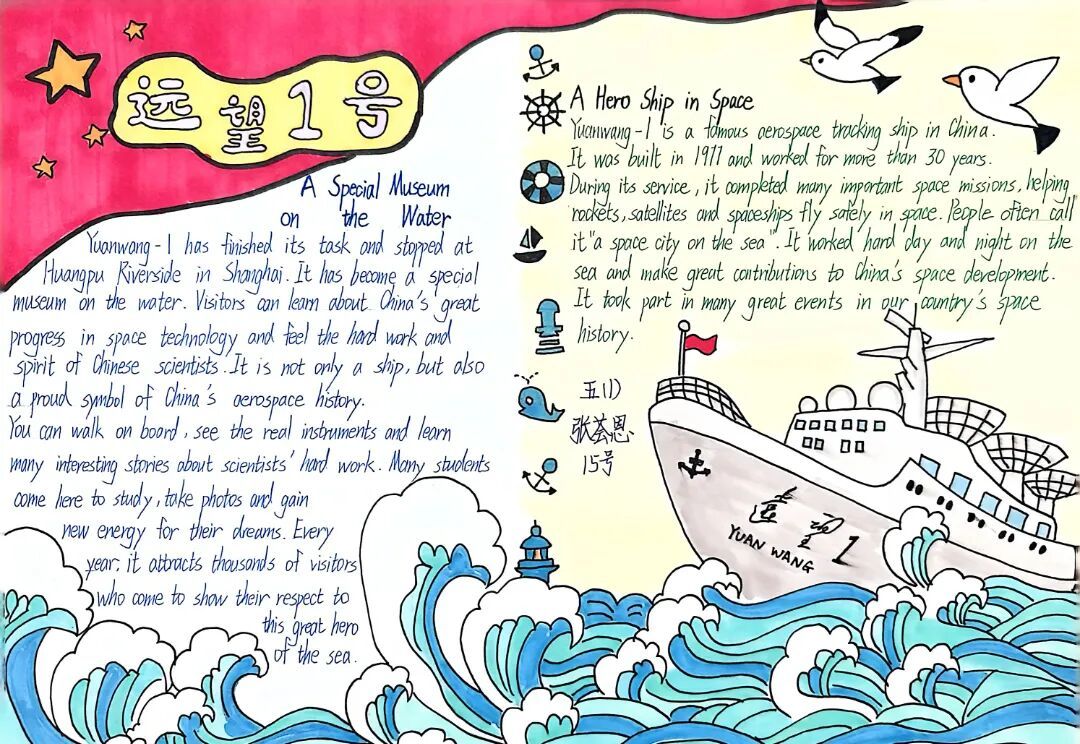 远望1号
A Special Museum
on the Water
Yuanwang-1 has finished its task and stopped at
Huangpu Riverside in Shanghai. It has become a special
museum on the water. Visitors can learn about China's great
progress in space technology and feel the hard work and
spirit of Chinese scientists. It is not only a ship, but also
a proud symbol of China's aerospace history.
You can walk on board, see the real instruments and learn
many interesting stories about scientists' hard work. Many students
come here to study, take photos and gain
new energy for their dreams. Every
year, it attracts thousands of visitors
who come to show their respect to
this great hero
of the sea.
A Hero Ship in Space
Yuanwang-1 is a famous aerospace tracking ship in China.
It was built in 1977 and worked for more than 30 years.
During its service, it completed many important space missions, helping
rockets, satellites and spaceships fly safely in space. People often call
it "a space city on the sea". It worked hard day and night on the
sea and make great contributions to China's space development.
It took part in many great events in our country's space
history.
五(1)
张荟恩
15号
远望1
YUAN WANG